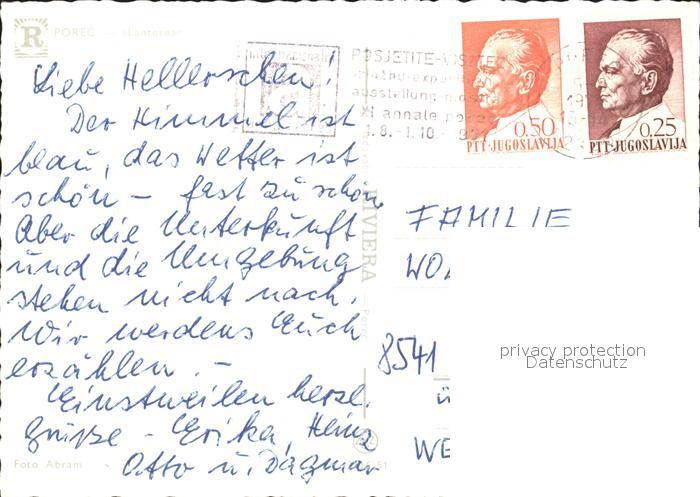 R POREČ — »Lanterna«
Liebe Hellerschen!
Der Himmel ist
blau, das Wetter ist
schön – fast zu schön
Aber die Unterkunft
und die Umgebung
stehen nicht nach.
Wir werdens Euch
erzählen. –
Einstweilen herzl.
Grüße - Erika, Heinz
Otto u. Dagmar
Foto Abram
RIVIERA
POSJETITE-VISITEZ
ausstellung
XI annale
1.8.-1.10.
0.50
PTT·JUGOSLAVIJA
0.25
PTT·JUGOSLAVIJA
FAMILIE
WO
8541
ü
WE
51
privacy protection
Datenschutz